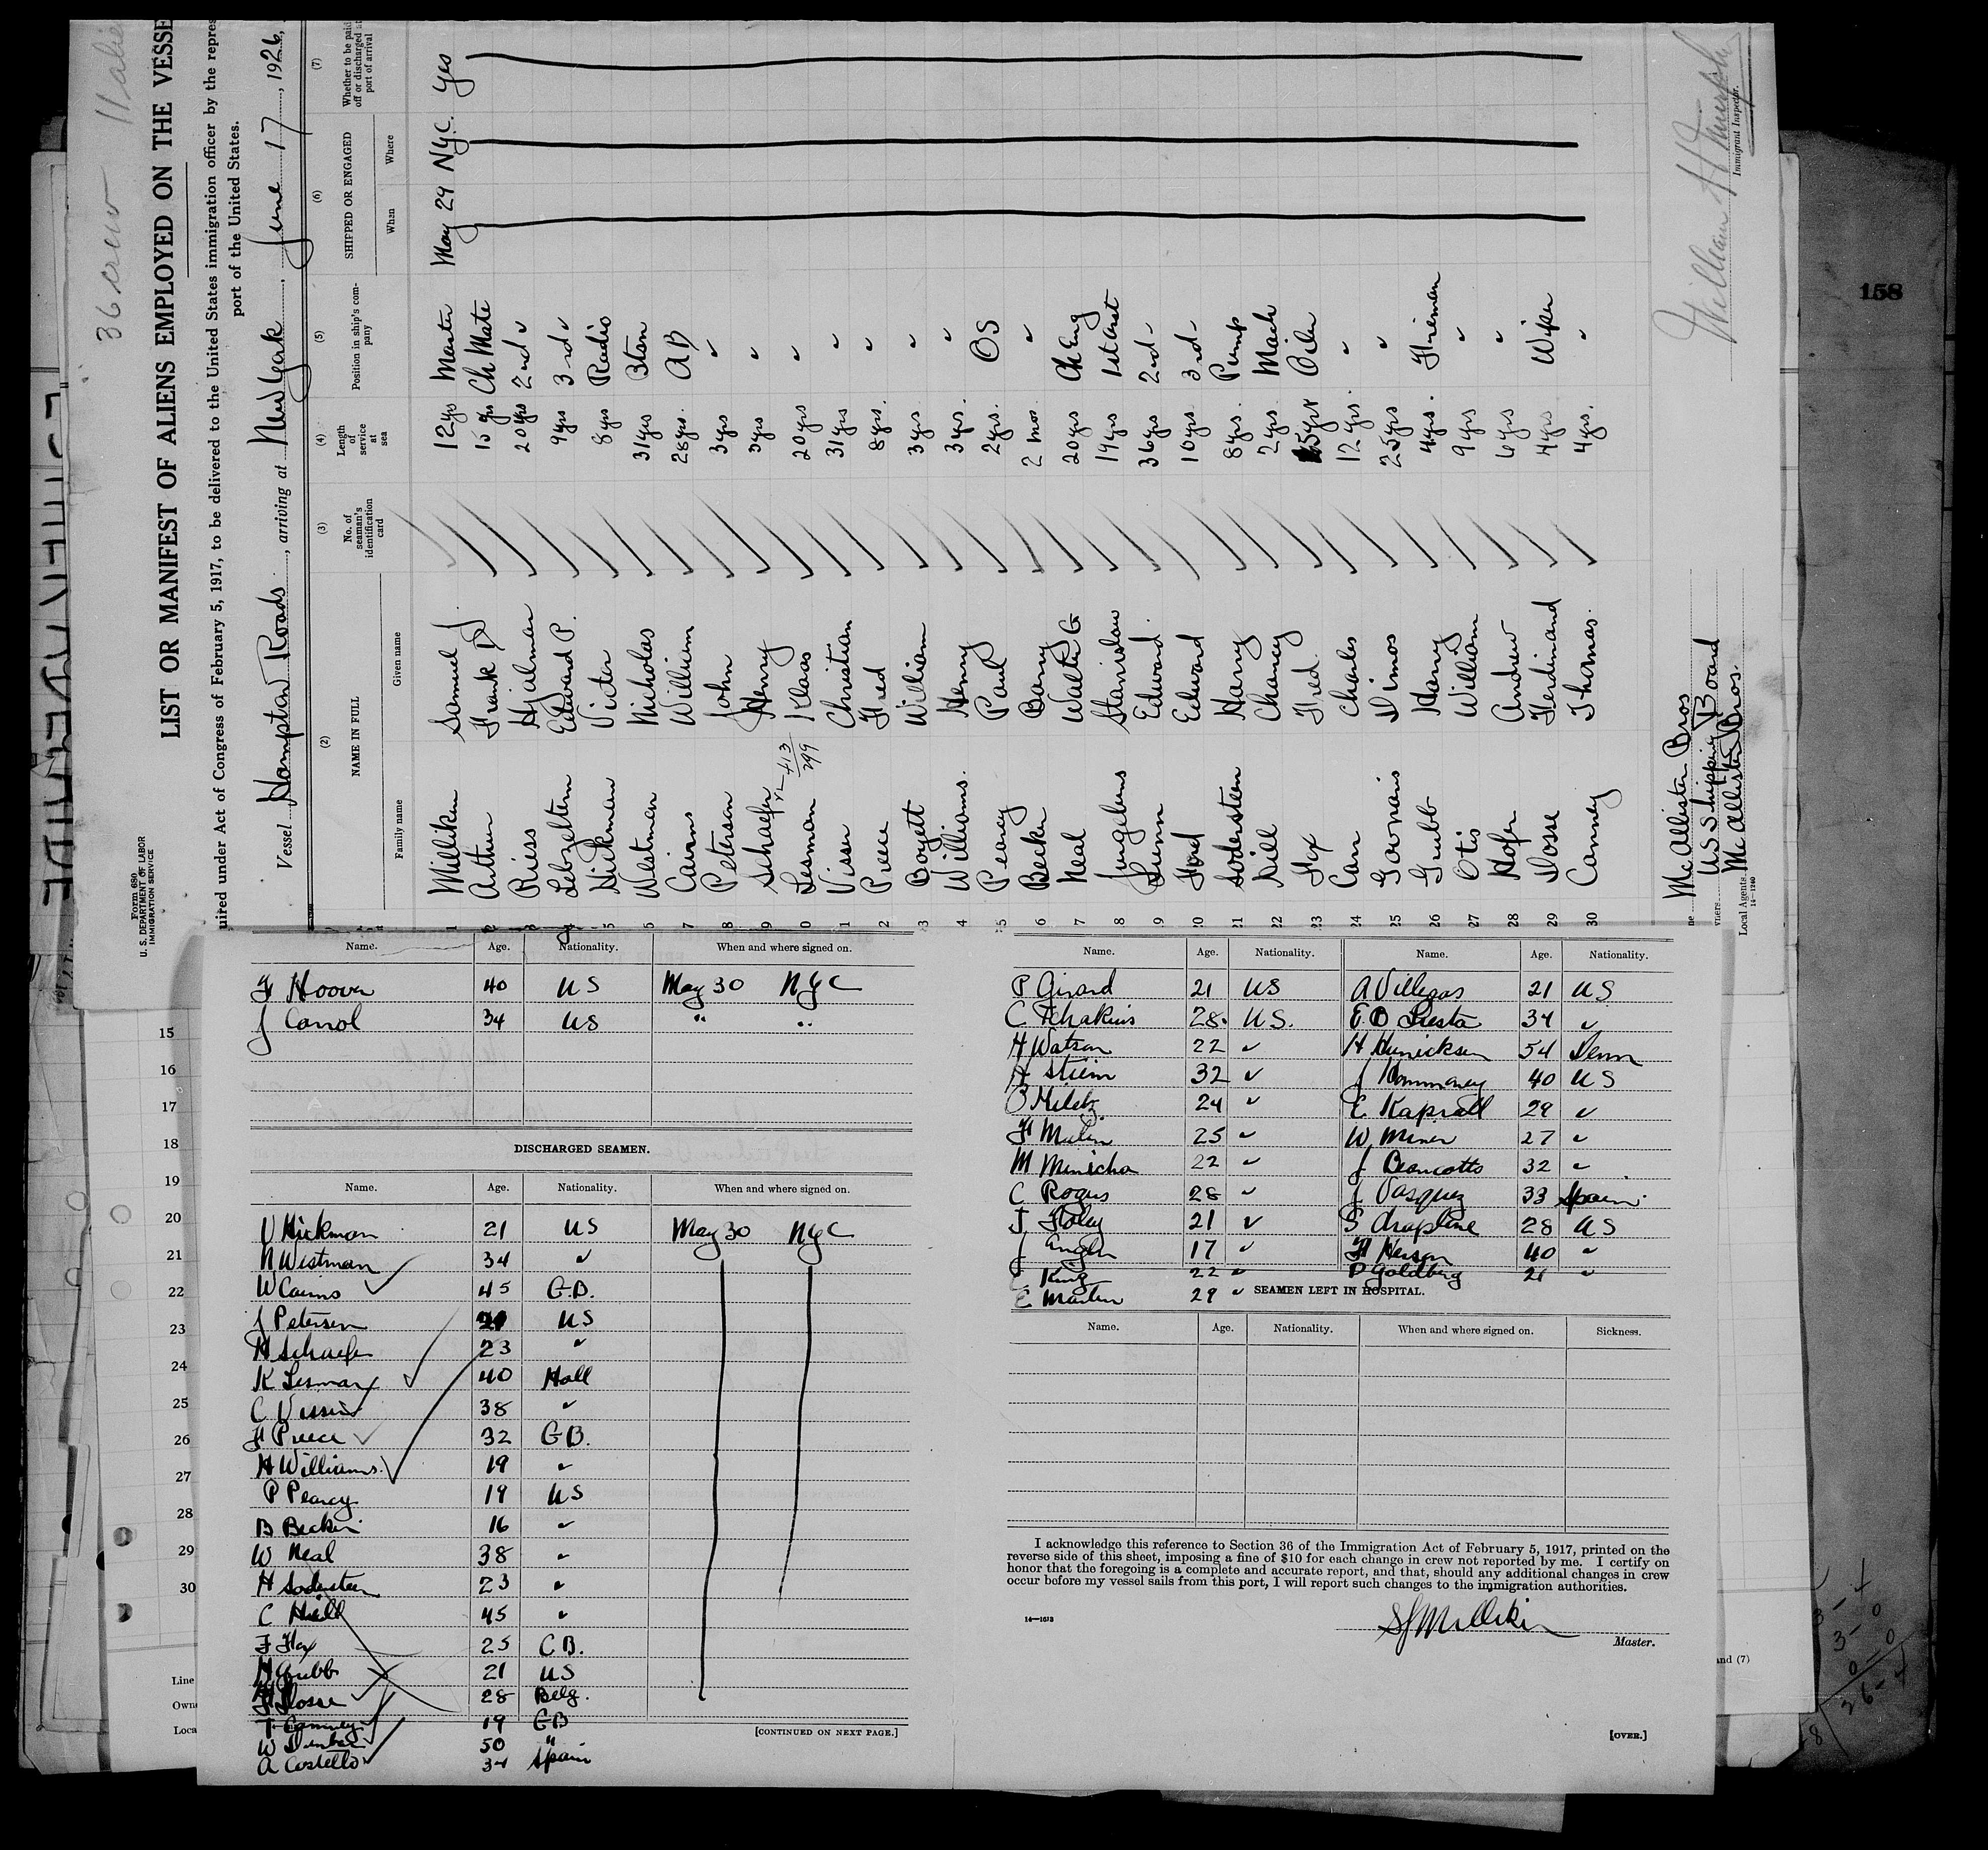 36 crew 11 alie
Form 680
U. S. DEPARTMENT OF LABOR
IMMIGRATION SERVICE
LIST OR MANIFEST OF ALIENS EMPLOYED ON THE VESSE
uired under Act of Congress of February 5, 1917, to be delivered to the United States immigration officer by the repres
port of the United States.
Vessel Hampton Roads, arriving at New York, June 17, 1926,
(2) (3) (4) (5) (6) (7)
NAME IN FULL No. of seaman's identification card Length of service at sea Position in ship's company SHIPPED OR ENGAGED Whether to be paid off or discharged at port of arrival
Family name Given name When Where
1 Milliken Samuel 12 yrs Master May 29 N.Y.C. Yes
2 Arthur Frank 15 yrs Ch Mate
3 Riess Hjalmar 20 yrs 2nd "
4 Lebzeltern Edward P. 9 yrs 3rd "
5 Hickman Victor 8 yrs Radio
6 Westman Nicholas 31 yrs Btsn
7 Cairns William 28 yrs. AB
8 Peterson John 3 yrs "
9 Schaefer Henry 3 yrs "
10 Lesman Klaas 20 yrs "
413
299
1 Visser Christian 31 yrs "
2 Preece Fred 8 yrs. "
3 Boyett William 3 yrs "
4 Williams. Henry 3 yrs. "
5 Pearcy Paul 2 yrs. OS
6 Becker Barry 2 mos "
7 Neal Walter G 20 yrs Ch Eng
8 Stanislaw 19 yrs 1st Asst
9 Edward. 36 yrs 2nd
20 Ford Edward 10 yrs 3rd
21 Sodersteen Harry 8 yrs. Pump
22 Hill Chancy 2 yrs. Mach
23 Fox Fred 5 yrs Oiler
24 Carr Charles 12 yrs. "
25 Dimos 25 yrs "
26 Grubb Harry 4 yrs. Fireman
27 Otis William 9 yrs "
28 Hofer Andrew 6 yrs "
29 Dosse Ferdinand 4 yrs Wiper
30 Canney Thomas. 4 yrs. "
McAllister Bros
U S Shipping Board
Local Agents McAllister Bros.
14—1240
William H Murphy
Immigrant Inspector.
158
Name. Age. Nationality. When and where signed on.
F Hoover 40 US May 30 NYC
J Carrol 34 US " "
DISCHARGED SEAMEN.
Name. Age. Nationality. When and where signed on.
V Hickman 21 US May 30 NYC
N Westman 34 "
W Cairns 45 G.B.
J Petersen US
H Schaefer 23 "
K Lesman 40 Holl
C Visser 38 "
F Preece 32 GB.
H Williams. 19 "
P Pearcy 19 US
B Becker 16 "
W Neal 38 "
H Sodersteen 23 "
C Hill 45 "
F Fox 25 G B.
H Grubb 21 US
F Dosse 28 Belg.
T Canney 19 GB
W 50 "
A Costello 34 Spain
[CONTINUED ON NEXT PAGE.]
15
16
17
18
19
20
21
22
23
24
25
26
27
28
29
30
Line
Own
Loca
Name. Age. Nationality. Name. Age. Nationality.
P Girard 21 US A Villegas 21 US
C 28. U.S. 34 "
H Watson 22 " H 54 Denn
Stein 32 " J 40 US
24 " E Kaprall 29 "
F 25 " W Miner 27 "
M Minicha 22 " J 32 "
C Rogus 28 " J Vasquez 33 Spain.
J Foley 21 " S 28 US
J Angler 17 " 40 "
King 22 " D Goldberg 21 "
E Martin 29 "
SEAMEN LEFT IN HOSPITAL.
Name. Age. Nationality. When and where signed on. Sickness.
I acknowledge this reference to Section 36 of the Immigration Act of February 5, 1917, printed on the
reverse side of this sheet, imposing a fine of $10 for each change in crew not reported by me. I certify on
honor that the foregoing is a complete and accurate report, and that, should any additional changes in crew
occur before my vessel sails from this port, I will report such changes to the immigration authorities.
14—1613
S J Milliken
Master.
[OVER.]
nd (7)